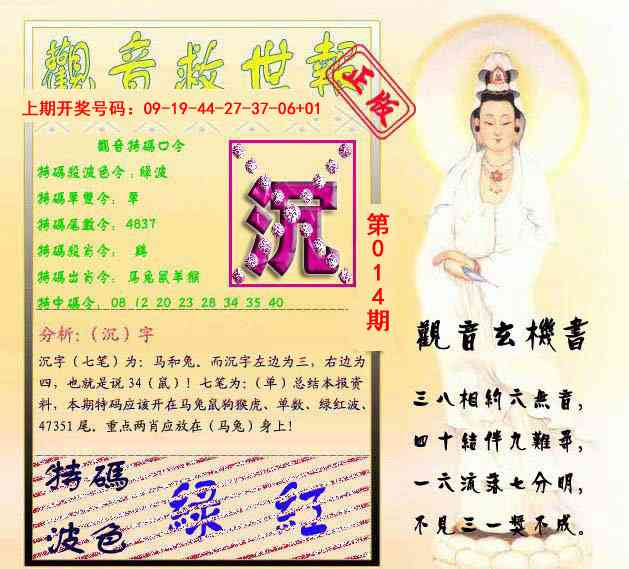 觀音救世報
正版
上期开奖号码：09-19-44-27-37-06+01
觀音特碼口令
特碼殺波色令：綠波
特碼單雙令： 單
特碼尾數令： 4837
特碼殺肖令： 鷄
特碼出肖令： 马兔鼠羊猴
特中碼令： 08 12 20 23 28 34 35 40
沉
第014期
分析：（沉）字
沉字（七笔）为：马和兔。而沉字左边为三，右边为
四，也就是说 34（鼠）！七笔为：（单）总结本报资
料，本期特码应该开在马兔鼠狗猴虎、单数、绿红波、
47351 尾。重点两肖应放在（马兔）身上！
特碼
波色
綠 紅
觀音玄機書
三八相約六無音，
四十結伴九難尋，
一六流落七分明，
不見三一獎不成。